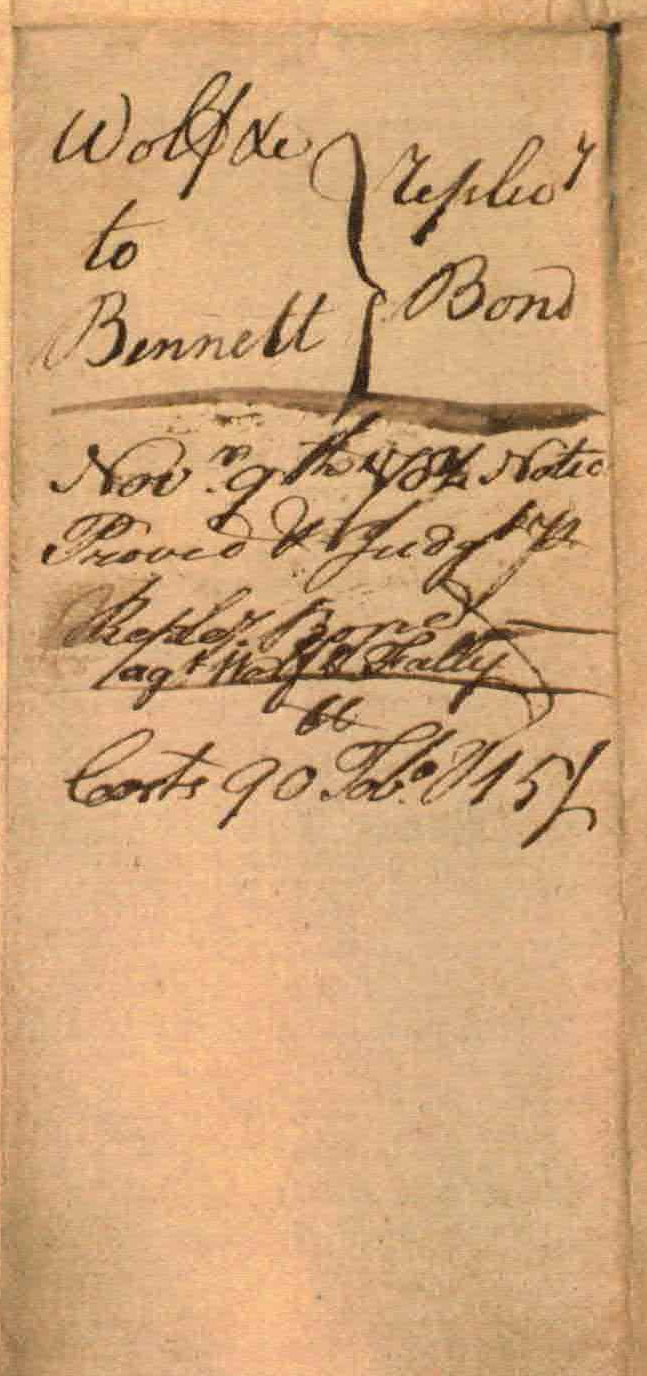 Wolf &c
to
Bennett
Replev.y
Bond
Nov.r 9th Notice
Proved & Judgt p
Replev.y Bond
agt Wolf & Fally
Costs 90 Tobo. & 15/